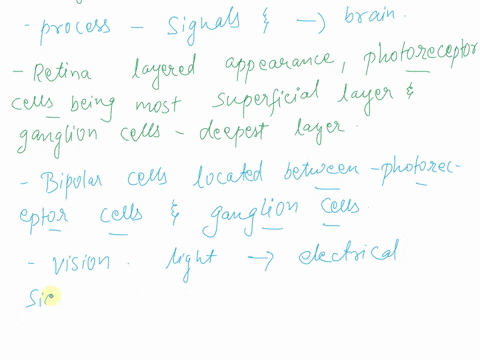 - process - signals & → brain.
- Retina layered appearance, photoreceptor
cells being most superficial layer &
ganglion cells - deepest layer.
- Bipolar cells located between -photorec-
eptor cells & ganglion cells.
- Vision. light → electrical